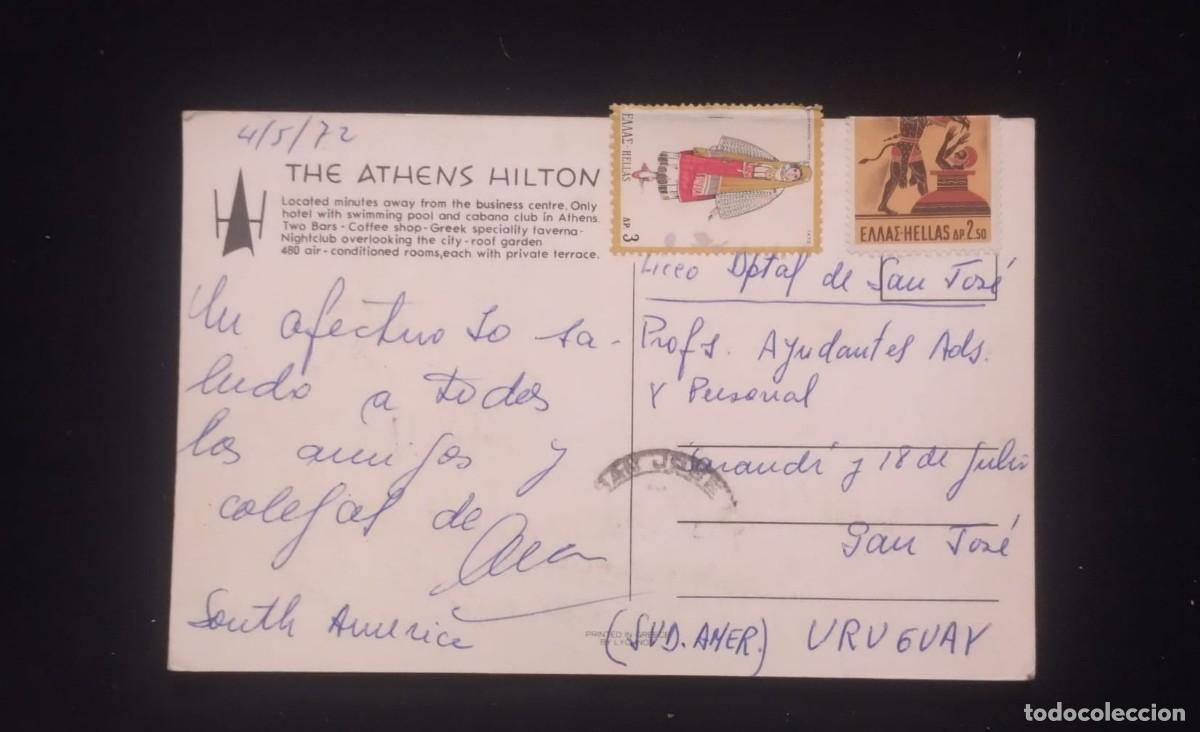 4/5/72
THE ATHENS HILTON
Located minutes away from the business centre. Only
hotel with swimming pool and cabana club in Athens.
Two Bars - Coffee shop - Greek speciality taverna -
Nightclub overlooking the city - roof garden
480 air - conditioned rooms, each with private terrace.
Un afectuoso sa-
ludo a todos
los amigos y
colegas de
South America
ΕΛΛΑΣ-HELLAS
ΔΡ. 3
ΕΛΛΑΣ-HELLAS ΔΡ 2.50
Liceo Dptal de San José
Profs. Ayudantes Ads.
y Personal
Sarandí y 18 de Julio
SAN JOSE
San José
(SUD. AMER.) URUGUAY
PRINTED IN GREECE
BY
todocoleccion